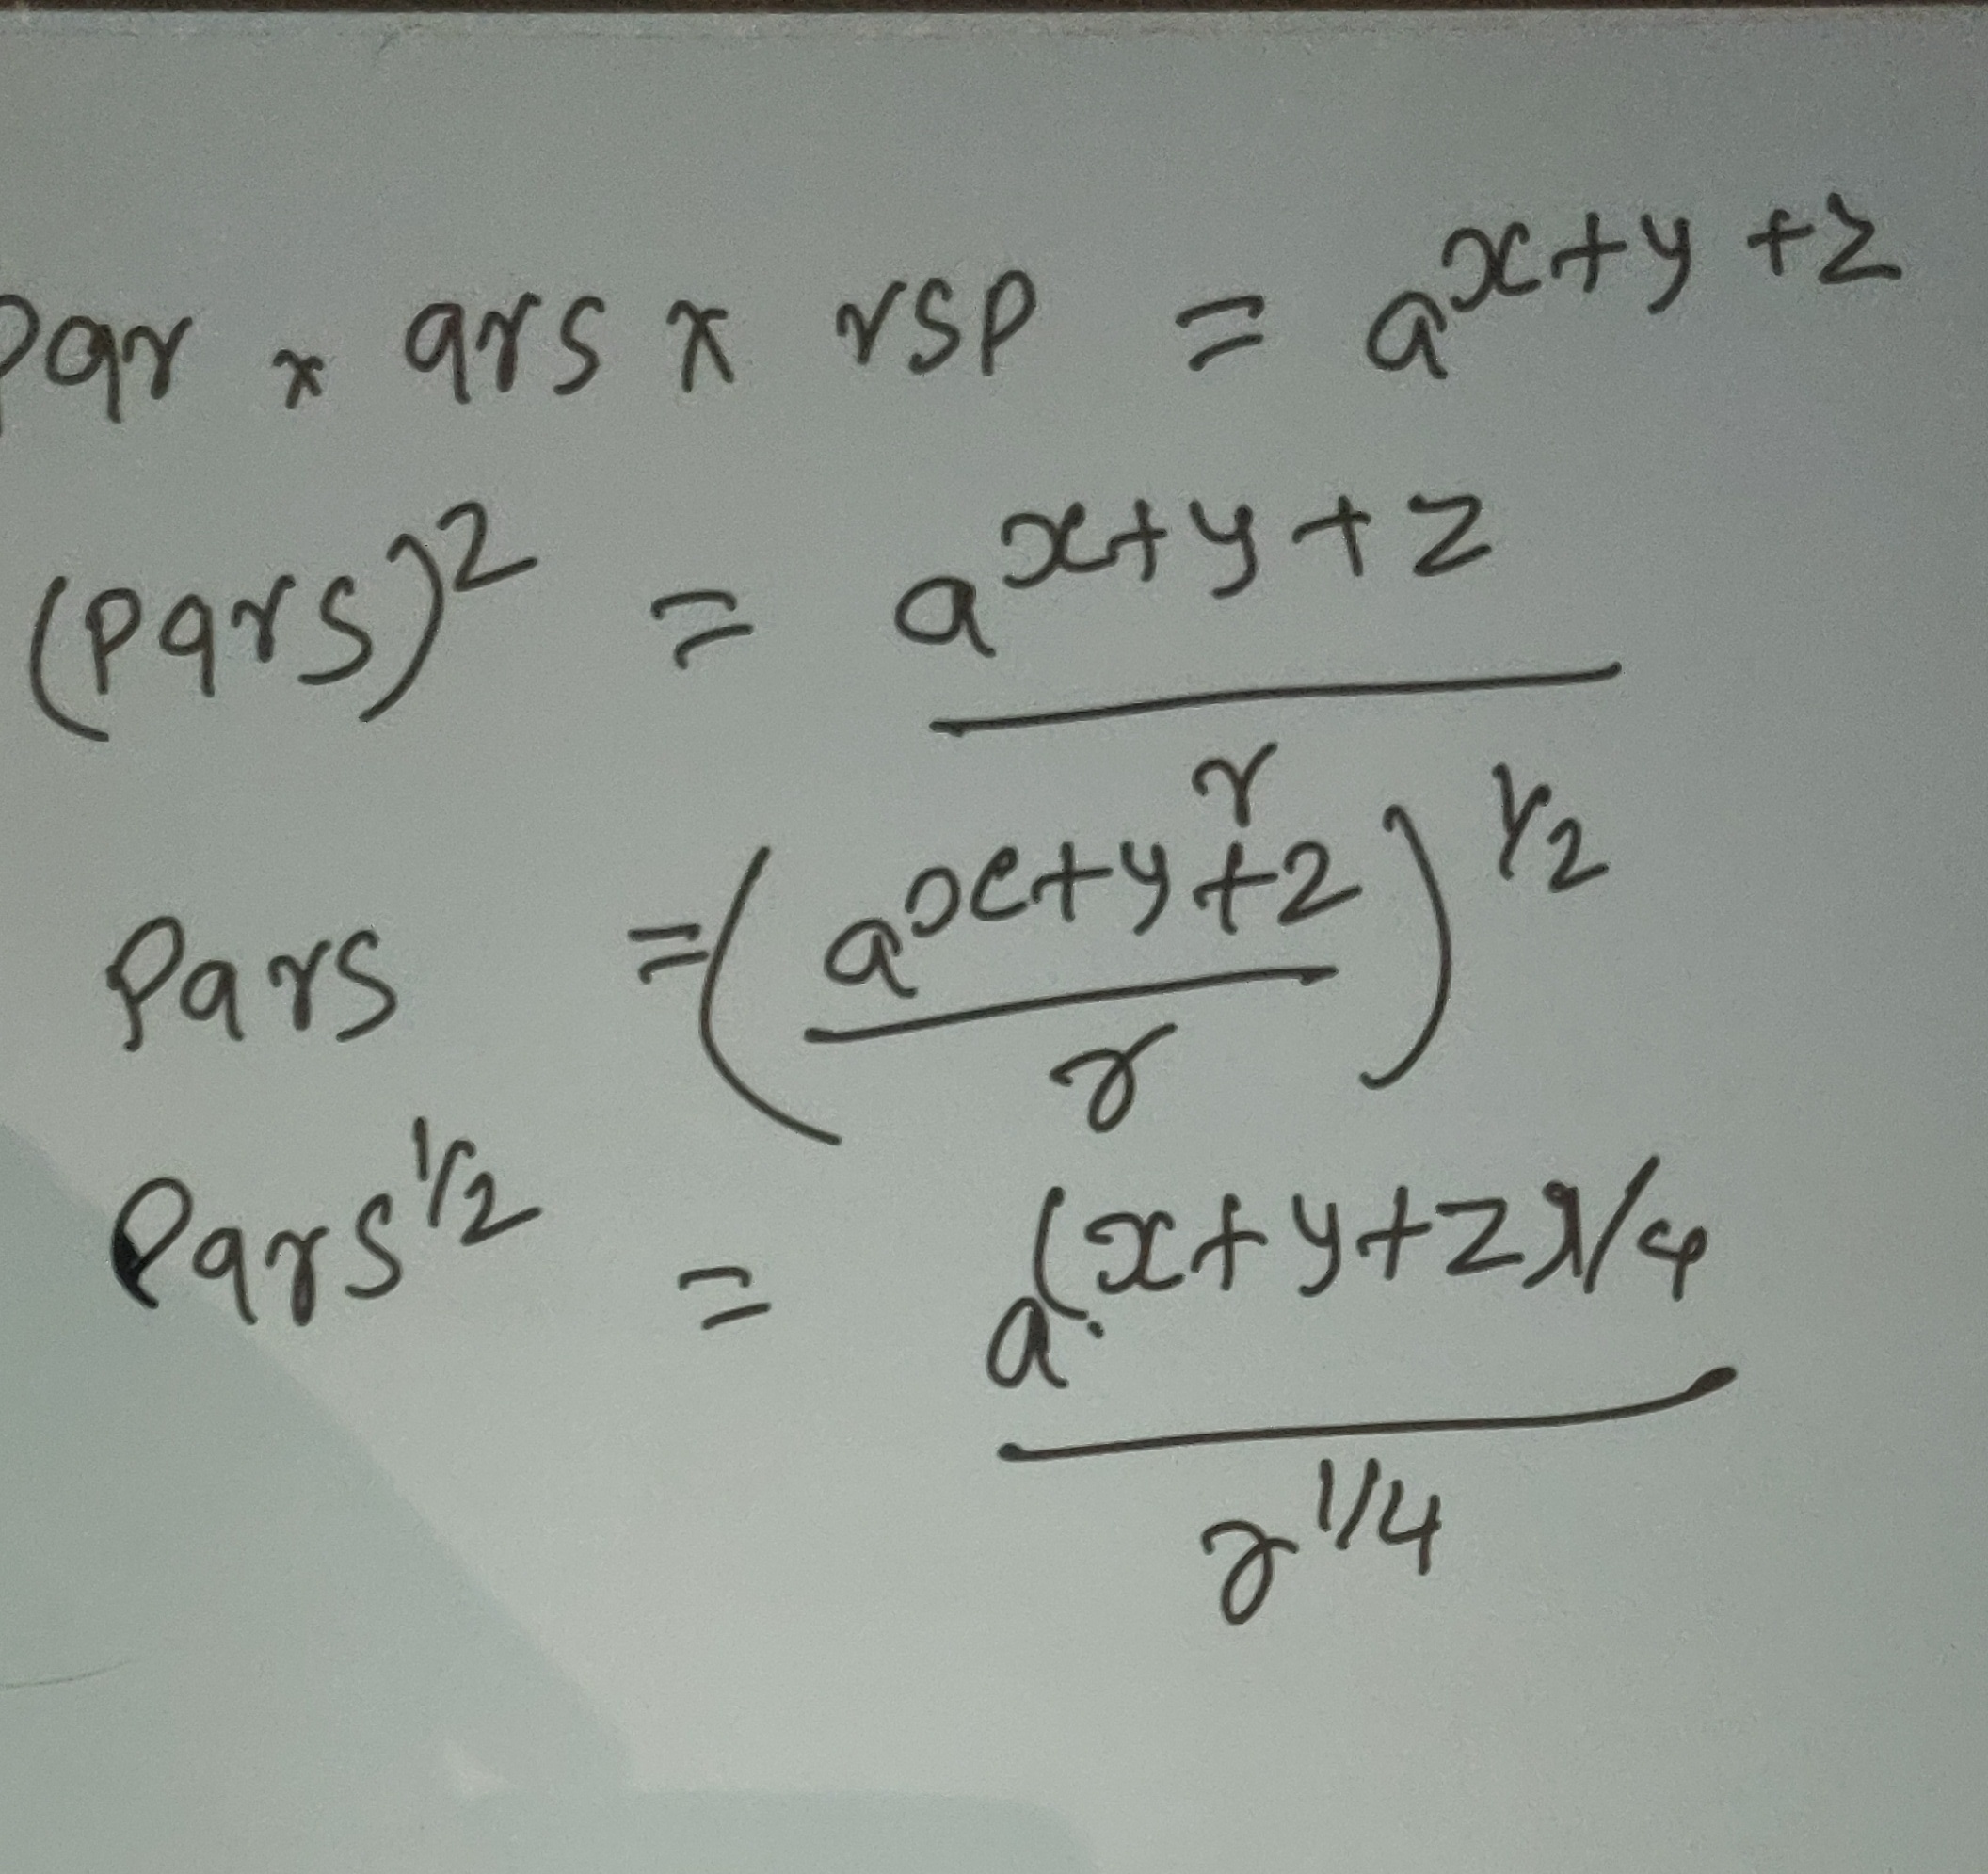 pqr x qrs x rsp = a^x+y+z
(pqrs)^2 = a^x+y+z / r
pqrs = (a^x+y+z / r)^1/2
pqrs^1/2 = a^(x+y+z)1/4 / r^1/4